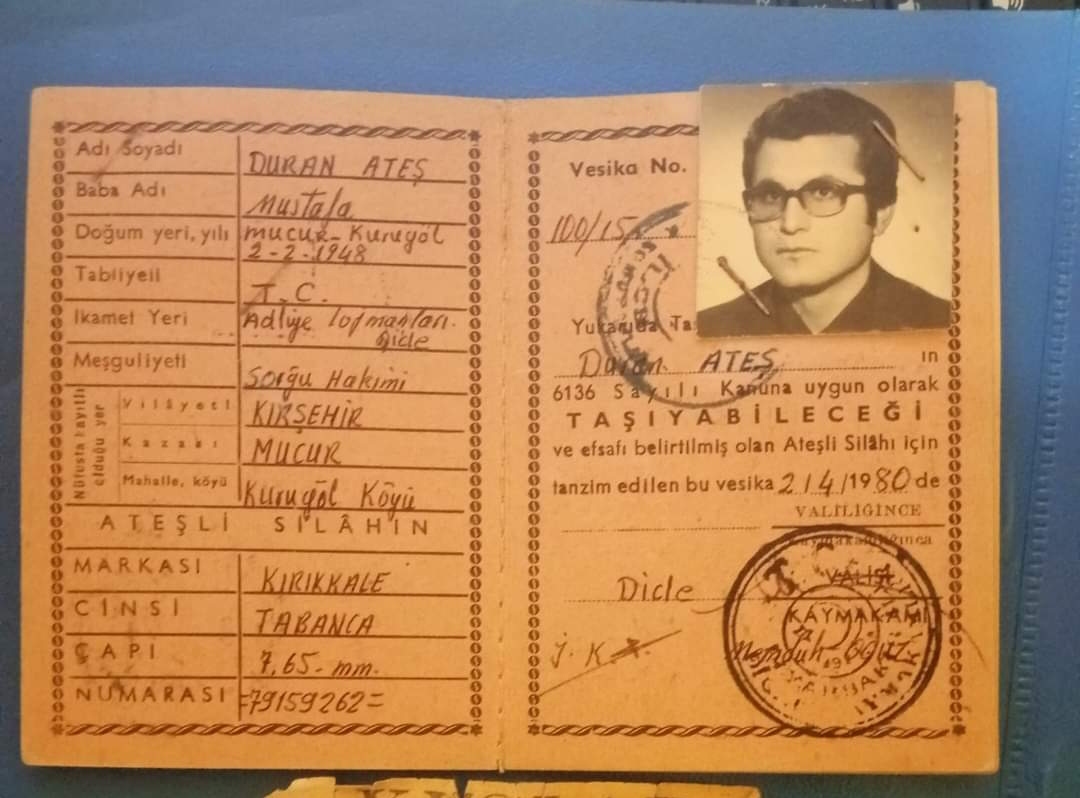 Adı Soyadı DURAN ATEŞ
Baba Adı Mustafa
Doğum yeri, yılı Mucur-Kurugöl
2-2-1948
Tabliyeti T.C.
İkamet Yeri Adliye Lojmanları.
Dicle
Meşguliyeti Sorğu Hakimi
Nüfusta kayıtlı olduğu yer
Vilâyeti KIRŞEHİR
Kazası MUCUR
Mahalle, köyü Kurugöl Köyü
ATEŞLİ SİLÂHIN
MARKASI KIRIKKALE
CİNSİ TABANCA
ÇAPI 7,65-mm.
NUMARASI -79159262=
Vesika No.
100/15
Yukarıda
Duran ATEŞ in
6136 Sayılı Kanuna uygun olarak
TAŞIYABİLECEĞİ
ve efsafı belirtilmiş olan Ateşli Silâhı için
tanzim edilen bu vesika 2/4/1980 de
VALİLİĞİNCE
Kaymakamlığınca
Dicle VALİSİ
KAYMAKAMI
Memduh
T.C.